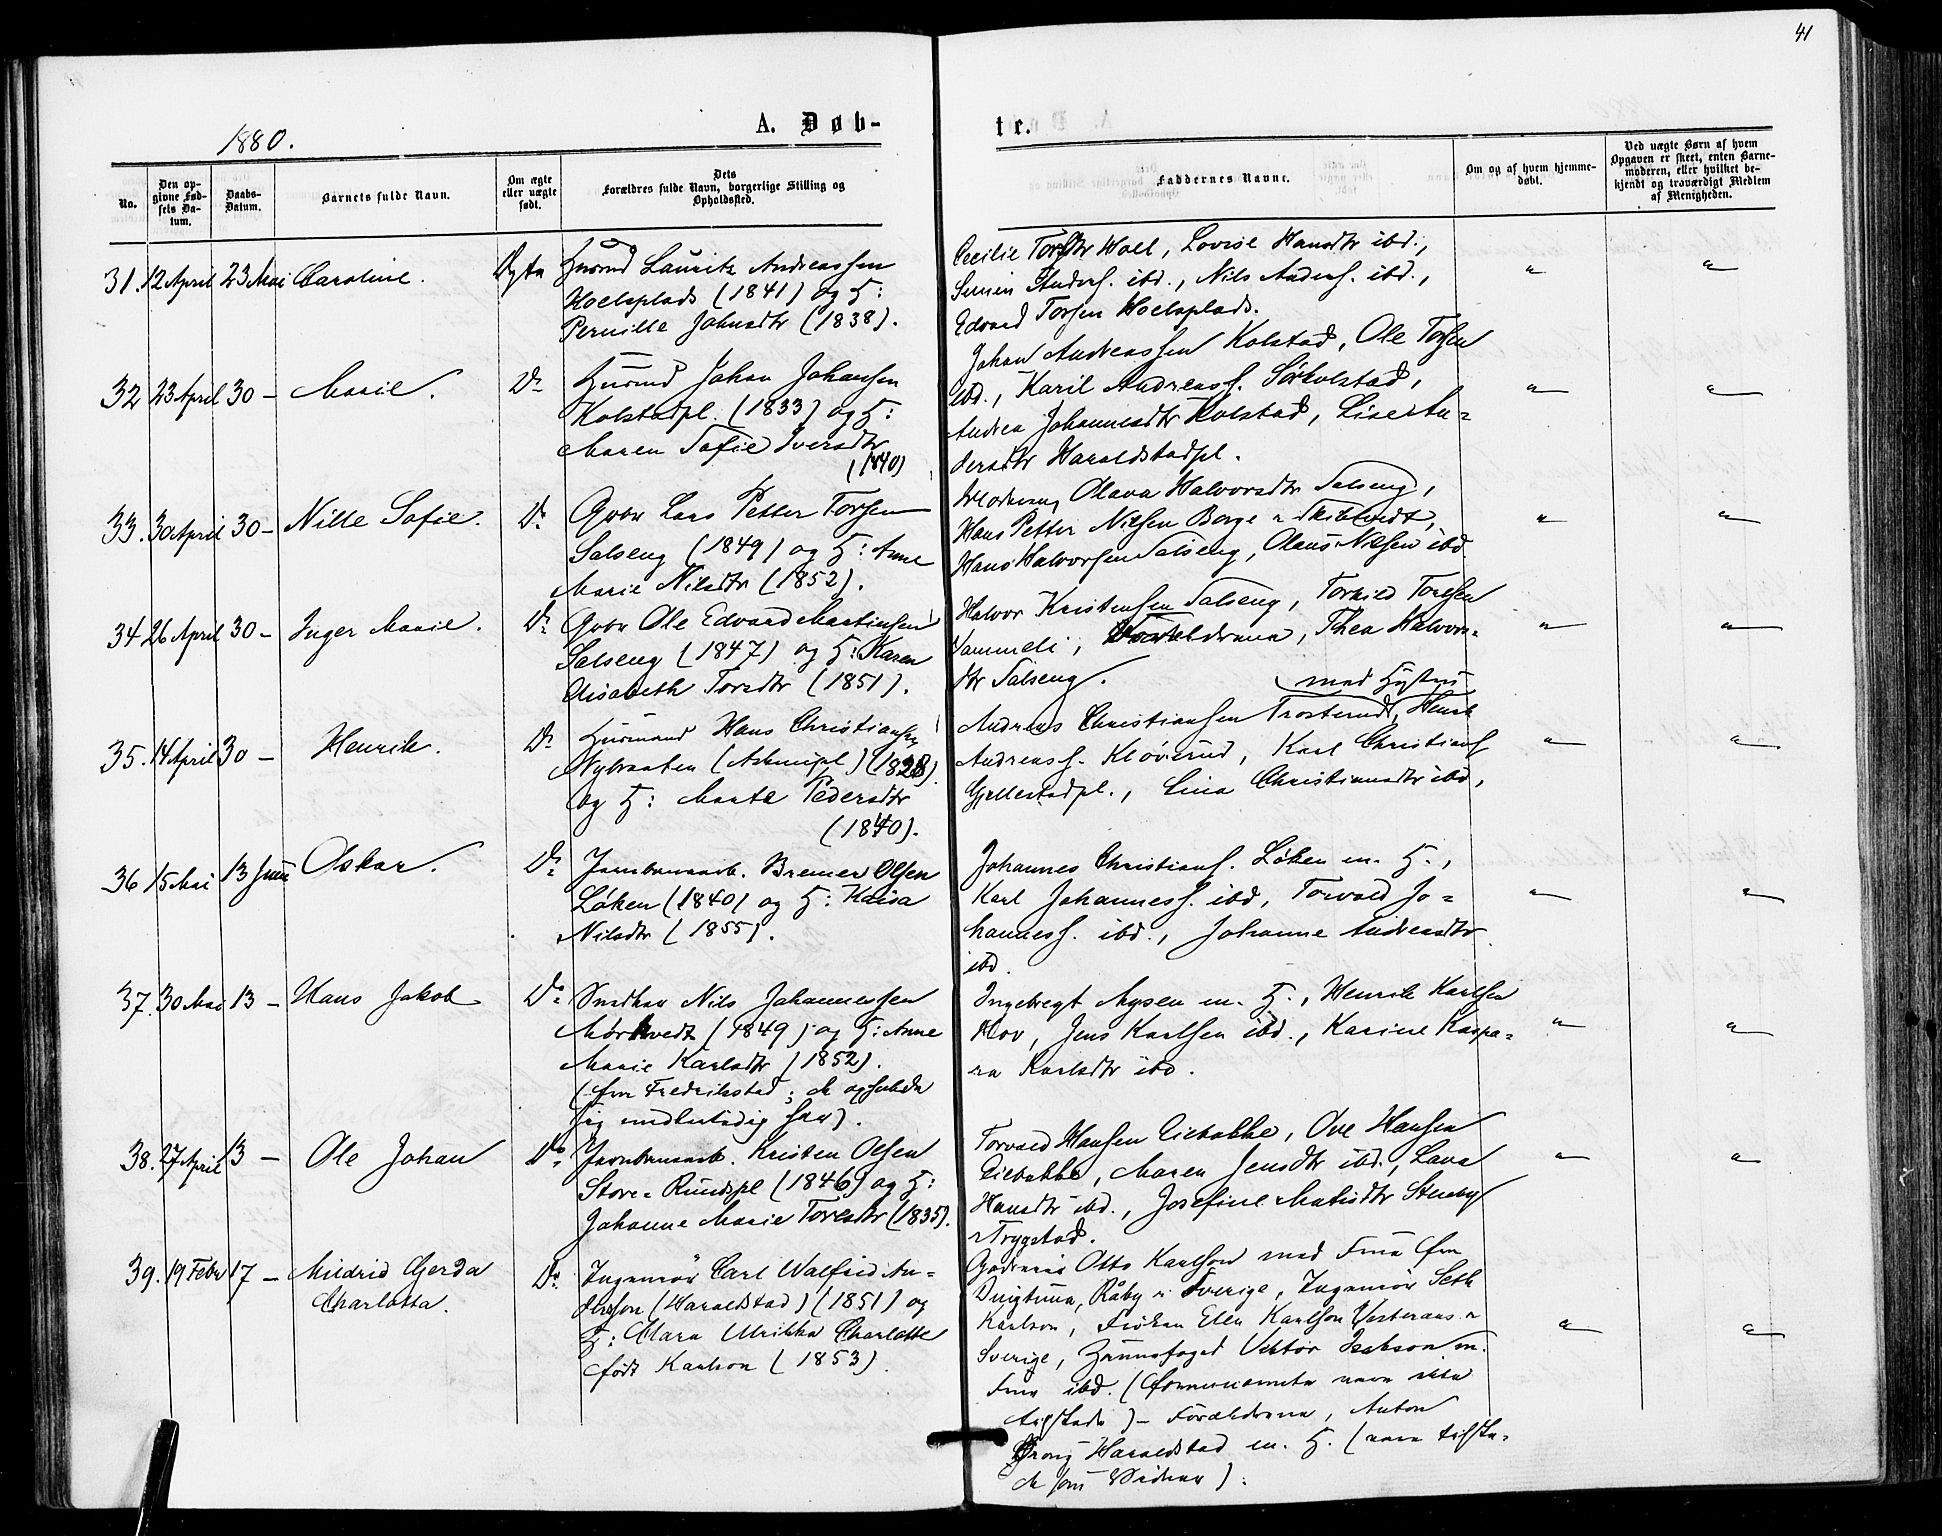 41
1880.
A. Døb-
te.
No.
Den op-
givne Fød-
sels Da-
tum.
Daabs-
Datum.
Barnets fulde Navn.
Om ægte
eller uægte
født.
Dets
Forældres fulde Navn, borgerlige Stilling og
Opholdssted.
Faddernes Navne.
Om og af hvem hjemme-
døbt.
Ved uægte Børn af hvem
Opgaven er skeet, enten Barne-
moderen, eller hvilket be-
kjendt og troværdigt Medlem
af Menigheden.
31. 12 April 23 Mai Caroline. Ægte Husmd Lauritz Andreassen
Hoelsplads (1841) og H:
Pernille Johnsdtr (1838).
Cecilie Torsdtr Hoel, Lovise Hansdtr ibd.,
Andersf. ibd., Nils Andersf. ibd.,
Edvard Torsen Hoelsplads.
32 23 April 30 – Marie. Do Husmd Johan Johansen
Kolstadpl. (1833) og H:
Maren Sofie Iversdtr
(1840)
Johan Andreassen Kolstad, Ole Torsen
ibd., Karil Andreasf. Sørkolstad,
Andrea Johannesdtr Kolstad, Lise An=
dersdtr Haraldstadpl.
33. 30 April 30 – Nille Sofie. Do Gbr Lars Petter Torsen
Salseng (1849) og H: Anne
Marie Nilsdtr (1852).
Moderen, Olava Halvorsdtr Salseng,
Hans Petter Nilsen Borge i Skibtvedt,
Hans Halvorsen Salseng, Olaus Nilsen ibd
34 26 April 30 – Inger Marie. Do Gbr Ole Edvard Martinsen
Salseng (1847) og H: Karen
Elisabeth Torsdtr (1851).
Halvor Kristensen Salseng, Torkild Toresen
Jammeli, Forældrene, Thea Halvors=
dtr Salseng.
35. 14 April 30 – Henrik. Do Husmand Hans Christiansen
Nybraaten (1828)
og H: Marte Pedersdtr
(1840).
med Hustru
Andreas Christiansen Trosterud, Henrik
Andreasf. Kløverud, Karl Christiansf
Gjellestadpl., Lina Christiansdtr ibd,
36 15 Mai 13 Juni Oskar. Do Jernbanearb. Bremer Olsen
Løken (1840) og H: Kaisa
Nilsdtr (1855).
Johannes Christiansf. Løken m. H.,
Karl Johannesf. ibd, Torvald Jo=
hannesf. ibd., Johanne Andersdtr
ibd.
37. 30 Mai 13 – Hans Jakob Do Snedker Nils Johannessen
Mørkvedt (1849) og H: Anne
Marie Karlsdtr (1852).
(fra Fredrikstad; de opholde
sig midlertidig her).
Ingebregt Mysen m. H., Henrik Karlsen
Hov, Jens Karlsen ibd., Karine Kaspa=
ra Karlsdtr ibd.
38. 27 April 13 – Ole Johan Do Jernbanearb. Kristen Olsen
Store-Rudspl (1846) og H:
Johanne Marie Toresdtr (1835).
Torvald Hansen Eiebakke, Ove Hansen
Eiebakke, Maren Jensdtr ibd., Lava
Hansdtr ibd., Josefine Matisdtr Stenby
i Trygstad.
39. 19 Febr 17 – Mildrid Gerda
Charlotta.
Do Ingeniør Carl Walfrid An=
dersson (Haraldstad) (1851) og
H: Clara Ulrikka Charlotte
født Karlson (1853).
Godseier Otto Karlson med Frue fra
Dingtuna, Råby i Sverige, Ingeniør Seth
Karlson, Frøken Ellen Karlson Vesteraas i
Sverige, Viktor Isakson m.
Frue ibd. (Foranævnte vare ikke
tilstede) – Forældrene, Anton
Haraldstad m. H. (vare tilste=
de som Vidner).